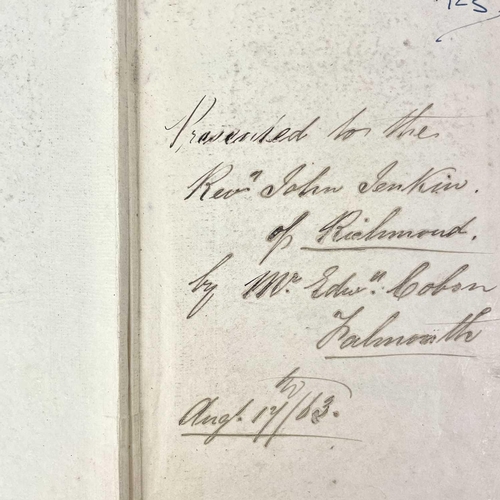 Presented to the
Revn John Jenkin.
of Richmond.
by Mr. Edwn. Cobon
Falmouth
Augt. 17th/63.